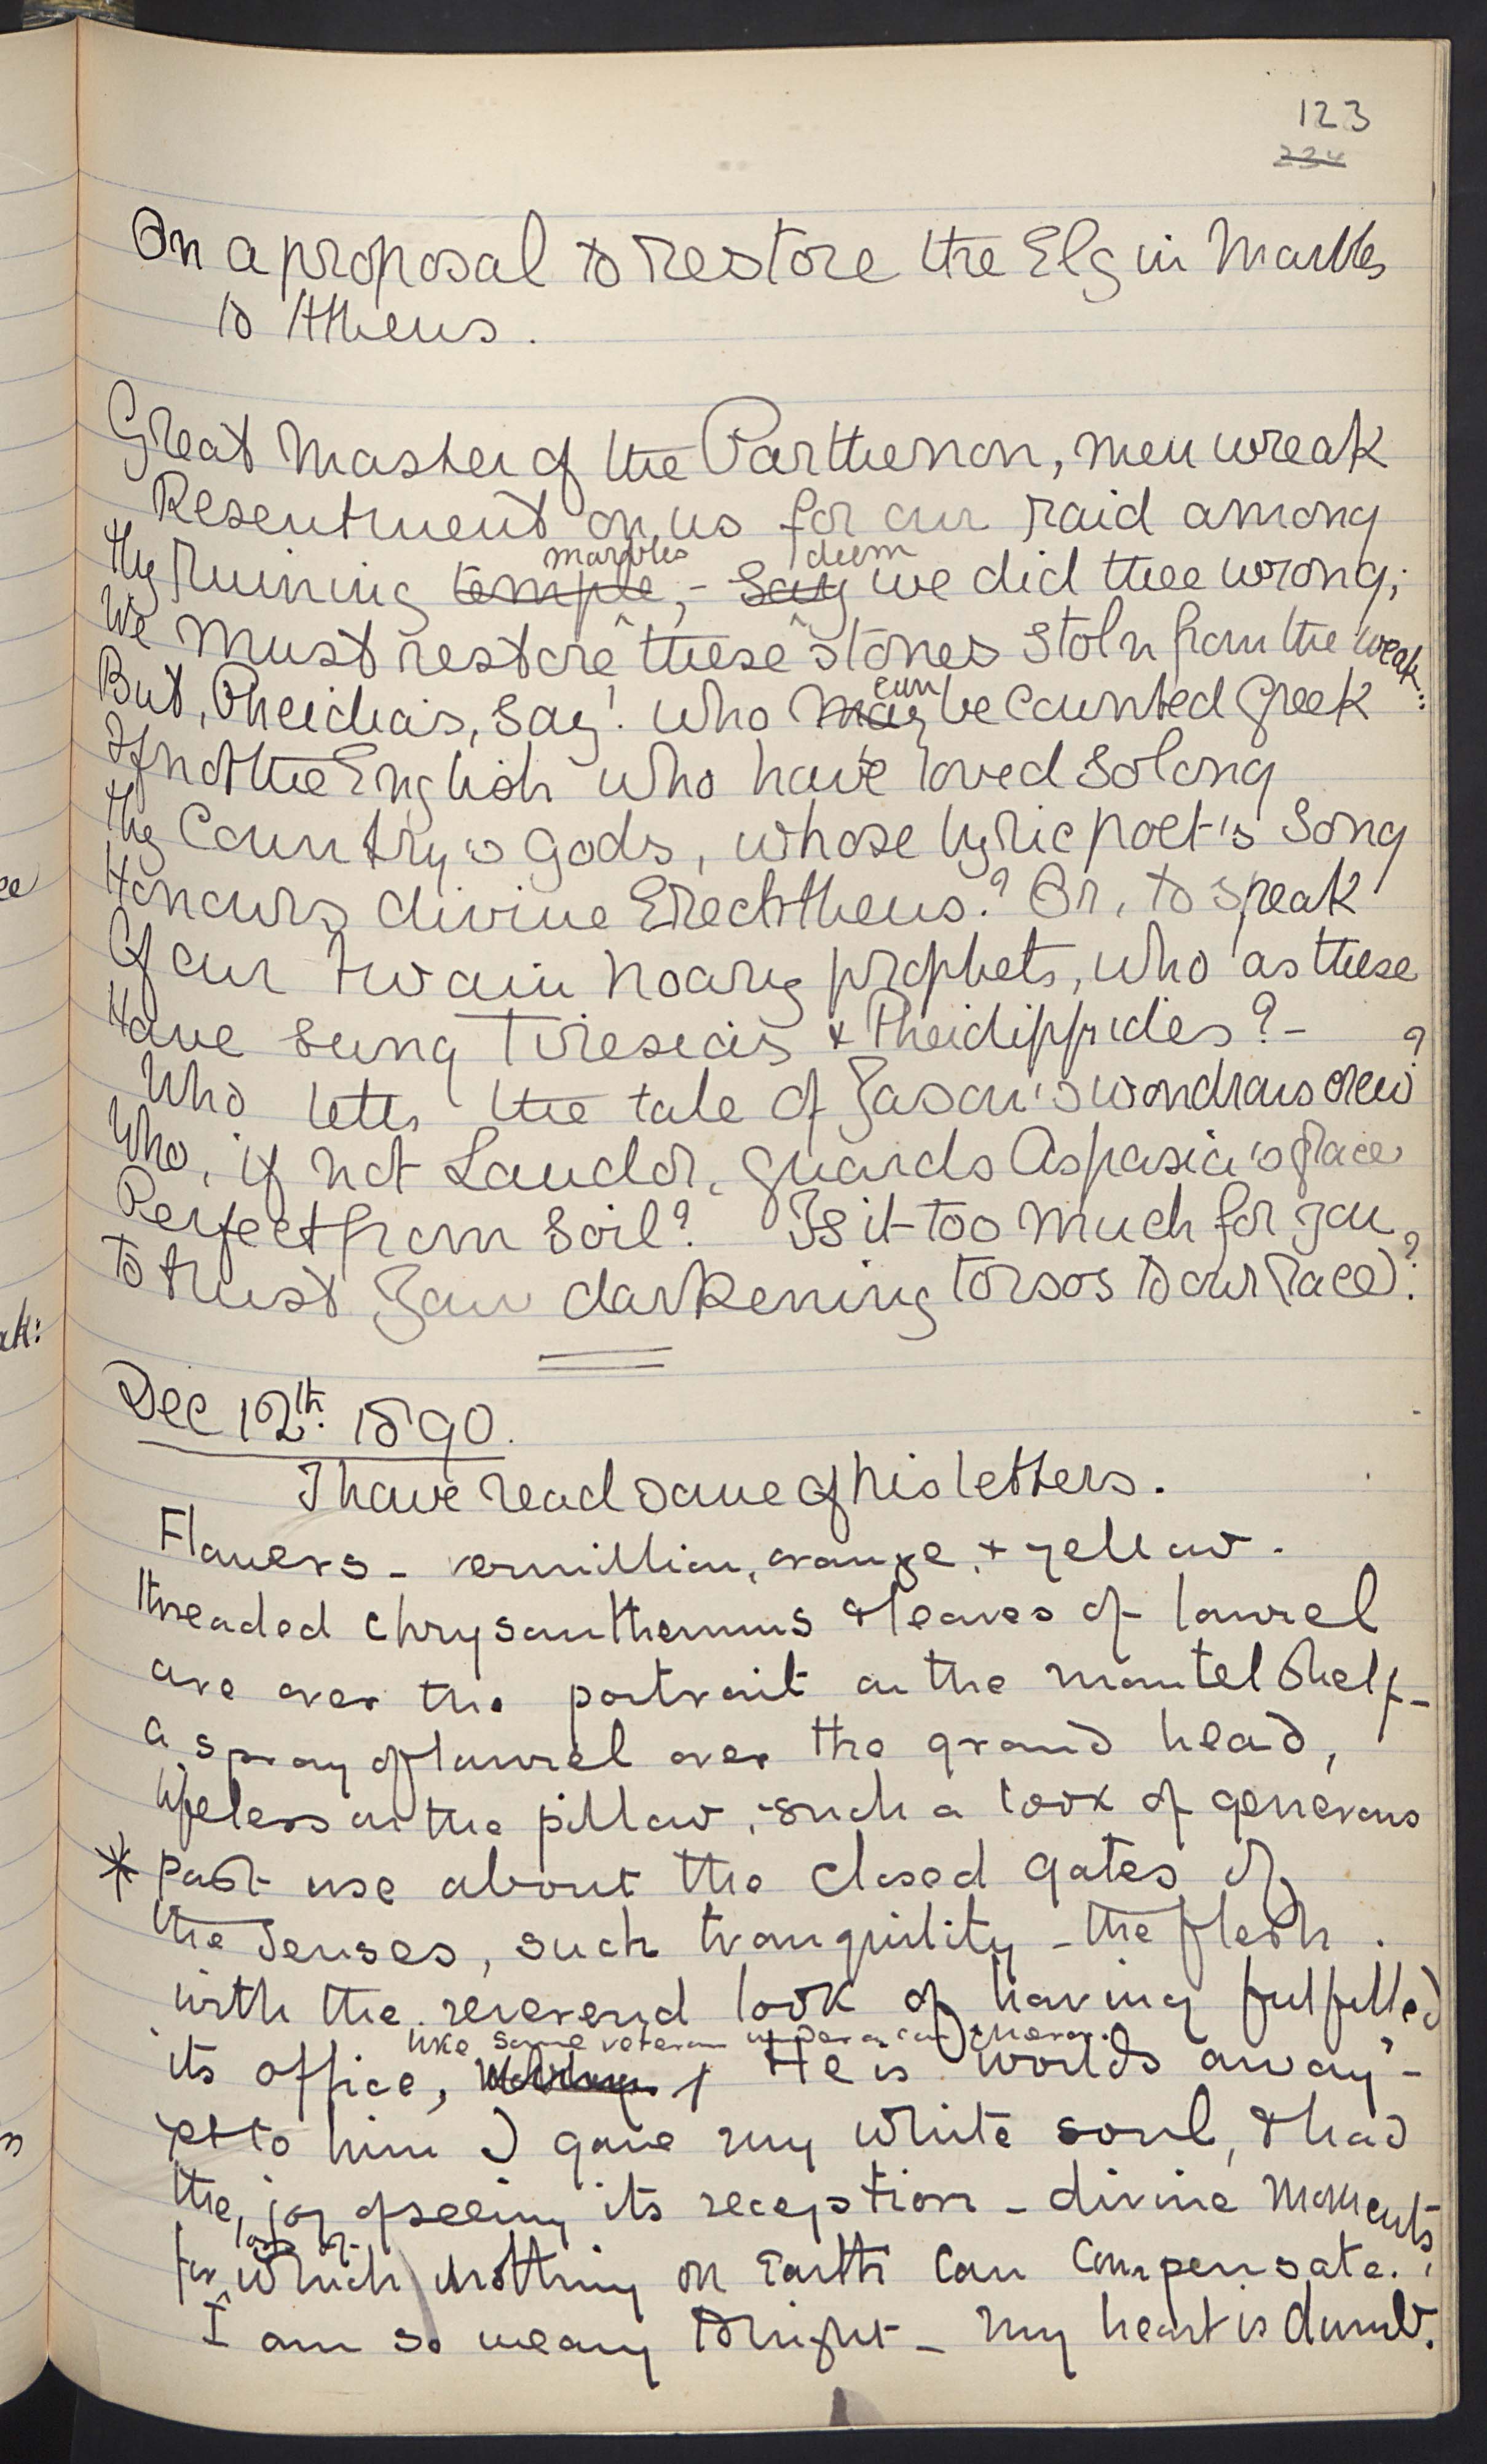 123
224
On a proposal to restore the Elgin Marbles
to Athens.
Great Master of the Parthenon, men wreak
Resentment on us for our raid among
marbles deem
thy ruining temple, - say we did thee wrong;
We must restore these stones stol'n from the weak:
can
But, Pheidias, say! who may be counted Greek
If not the English who have loved so long
thy Country's gods, whose lyric poet's song
Honours divine Erechtheus? Or, to speak
Of our twain hoary prophets, who as these
Have sung Tiresias & Pheidippides? -
Who tells the tale of Jason's wondrous crew?
Who, if not Landor, guards Aspasia's grace
Perfect from soil? Is it too much for you,
to trust your darkening torsos to our race?
Dec 12th. 1890.
I have read some of his letters.
Flowers - vermillion, orange, & yellow -
threaded chrysanthemums & leaves of laurel
are over the portrait on the mantel shelf -
a spray of laurel over the grand head,
lifeless on the pillow, such a look of generous
* past use about the closed gates of
the senses, such tranquility - the flesh
with the reverend look of having fulfilled
like some veteran
its office, He is "worlds away" -
yet to him I gave my white soul, & had
the joy of seeing its reception - divine moments
loss of
for which nothing on Earth can compensate.
I am so weary tonight - my heart is dumb.